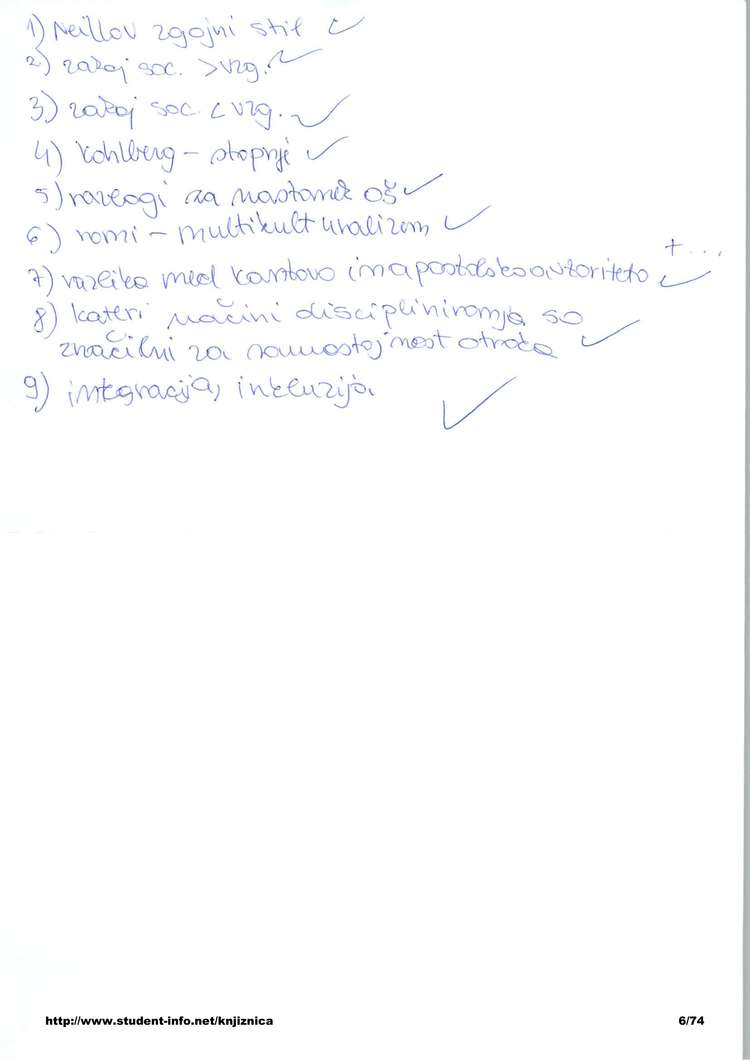 1) Neillov zgojni stil ✓
2) zakaj soc. > vzg. ✓
3) zakaj soc. < vzg. ✓
4) Kohlberg - stopnje ✓
5) razlogi za nastanek oš ✓
6) romi - multikulturalizem ✓
+ ...
7) razlika med kantovo in apostolsko avtoriteto ✓
8) kateri načini discipliniranja so
značilni za samostojnost otroka ✓
9) integracija, inkluzija. ✓
http://www.student-info.net/knjiznica
6/74